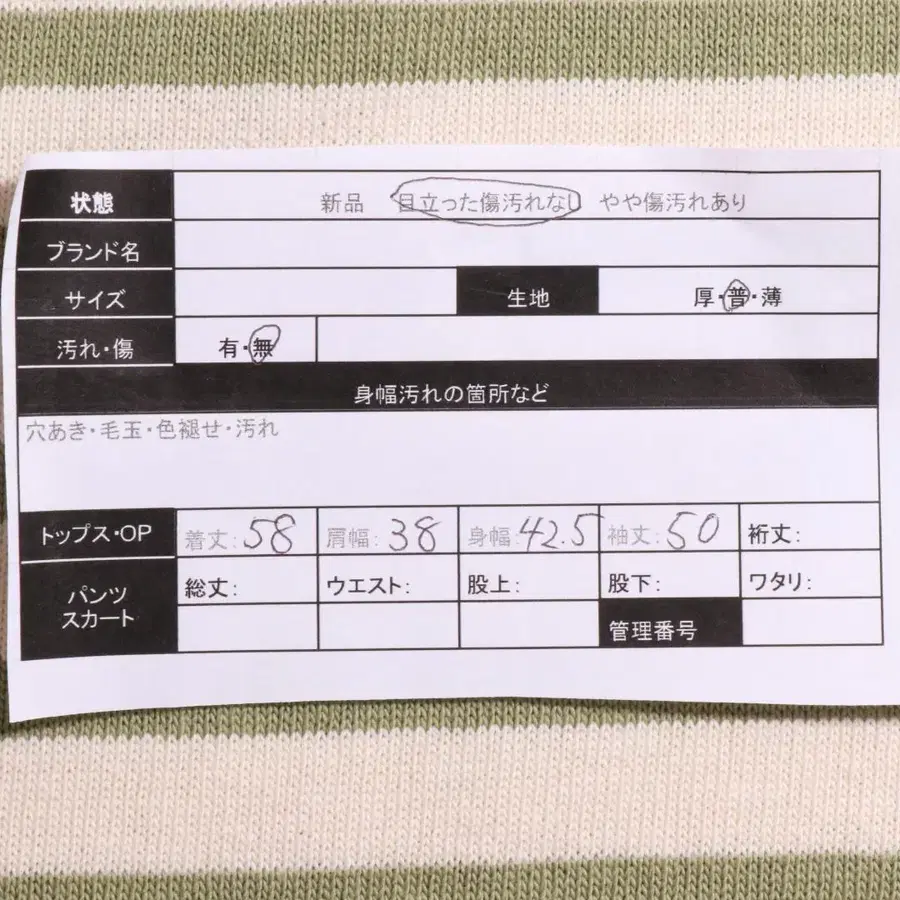 状態 新品 目立った傷汚れなし やや傷汚れあり
ブランド名
サイズ 生地 厚・普・薄
汚れ・傷 有・無
身幅汚れの箇所など
穴あき・毛玉・色褪せ・汚れ
トップス・OP 着丈:58 肩幅:38 身幅:42.5 袖丈:50 裄丈:
パンツ
スカート
総丈: ウエスト: 股上: 股下: ワタリ:
管理番号